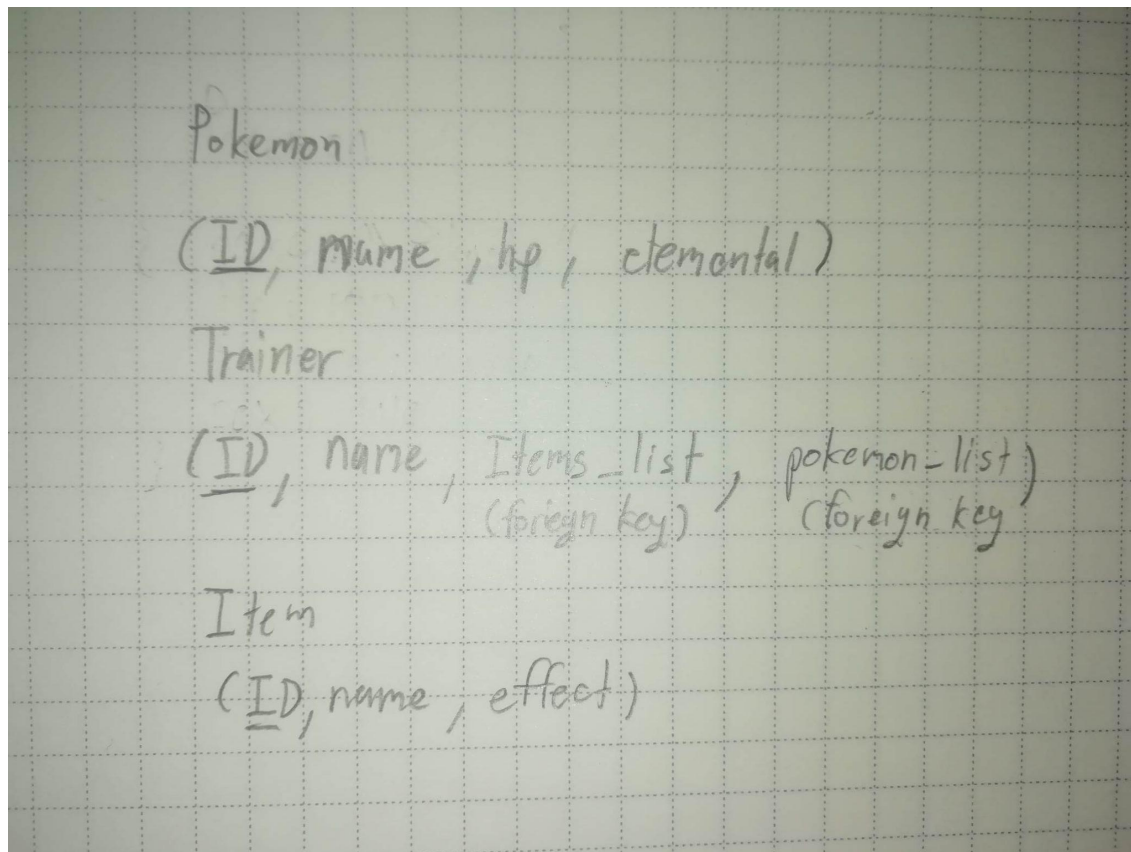 Pokemon
(ID, name, hp, elemental)
Trainer
(ID, name, Items_list, pokemon_list)
(foriegn key) (foreign key
Item
(ID, name, effect)